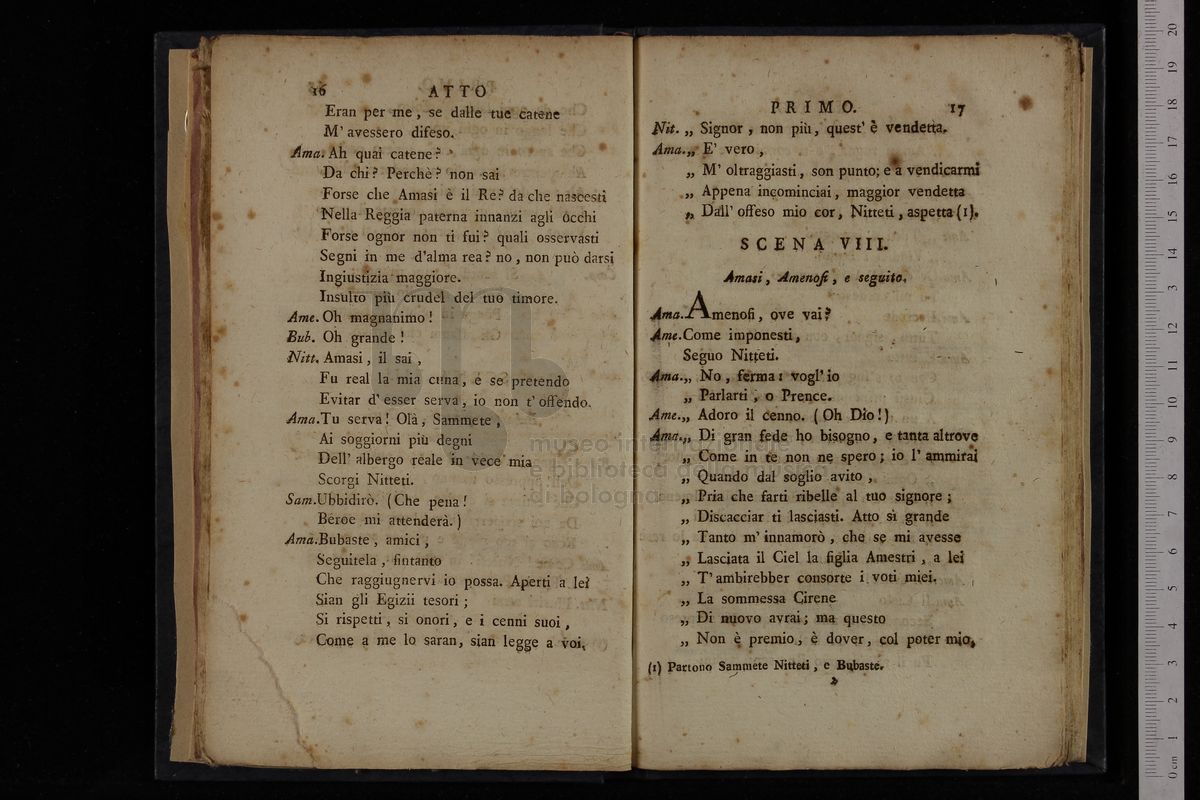 16 ATTO
Eran per me, se dalle tue catene
M' avessero difeso.
Ama. Ah quai catene?
Da chi? Perchè? non sai
Forse che Amasi è il Re? da che nascesti
Nella Reggia paterna innanzi agli occhi
Forse ognor non ti fui? quali osservasti
Segni in me d'alma rea? no, non può darsi
Ingiustizia maggiore.
Insulto più crudel del tuo timore.
Ame. Oh magnanimo!
Bub. Oh grande!
Nitt. Amasi, il sai,
Fu real la mia cuna, e se pretendo
Evitar d' esser serva, io non t' offendo.
Ama. Tu serva! Olà, Sammete,
Ai soggiorni più degni
Dell' albergo reale in vece mia
Scorgi Nitteti.
Sam. Ubbidirò. (Che pena!
Beroe mi attenderà.)
Ama. Bubaste, amici,
Seguitela, fintanto
Che raggiugnervi io possa. Aperti a lei
Sian gli Egizii tesori;
Si rispetti, si onori, e i cenni suoi,
Come a me lo saran, sian legge a voi.
PRIMO. 17
Nit. „ Signor, non più, quest' è vendetta.
Ama. „ E' vero,
„ M' oltraggiasti, son punto; e a vendicarmi
„ Appena incominciai, maggior vendetta
„ Dall' offeso mio cor, Nitteti, aspetta (1).
SCENA VIII.
Amasi, Amenofi, e seguito.
Ama. Amenofi, ove vai?
Ame. Come imponesti,
Seguo Nitteti.
Ama. „ No, ferma: vogl' io
„ Parlarti, o Prence.
Ame. „ Adoro il cenno. (Oh Dio!)
Ama. „ Di gran fede ho bisogno, e tanta altrove
„ Come in te non ne spero; io l' ammirai
„ Quando dal soglio avito,
„ Pria che farti ribelle al tuo signore;
„ Discacciar ti lasciasti. Atto sì grande
„ Tanto m' innamorò, che se mi avesse
„ Lasciata il Ciel la figlia Amestri, a lei
„ T' ambirebber consorte i voti miei.
„ La sommessa Cirene
„ Di nuovo avrai; ma questo
„ Non è premio, è dover, col poter mio,
(1) Partono Sammete Nitteti, e Bubaste.
museo internazionale
e biblioteca della musica
di bologna
0 cm 1 2 3 4 5 6 7 8 9 10 11 12 13 14 15 16 17 18 19 20